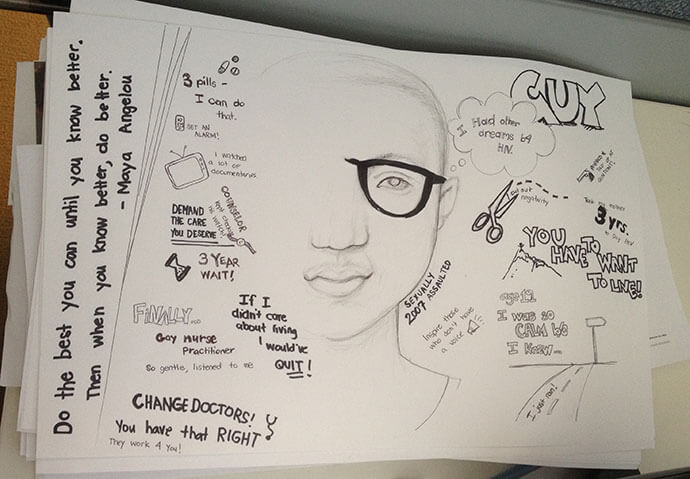 Do the best you can until you know better.
Then when you know better, do better.
- Maya Angelou
3 pills -
I can do
that.
SET AN
ALARM!
I watched
a lot of
documentaries
COUNSELOR
kept checking
DEMAND
THE CARE
YOU DESERVE
3 YEAR
WAIT!
FINALLY...
Gay Nurse
Practitioner
So gentle, listened to me
If I
didn't care
about living
I would've
QUIT!
CHANGE DOCTORS!
You have that RIGHT
They work 4 You!
GUY
I Had other
dreams b4
HIV.
SEXUALLY
2007 ASSAULTED
cut out
negativity
Took my mother
3 yrs.
to say HIV
YOU
HAVE TO
WANT
TO LIVE!
Inspire those
who don't have
a voice
age 12
I was so
CALM bc
I KNEW...
I just ran!